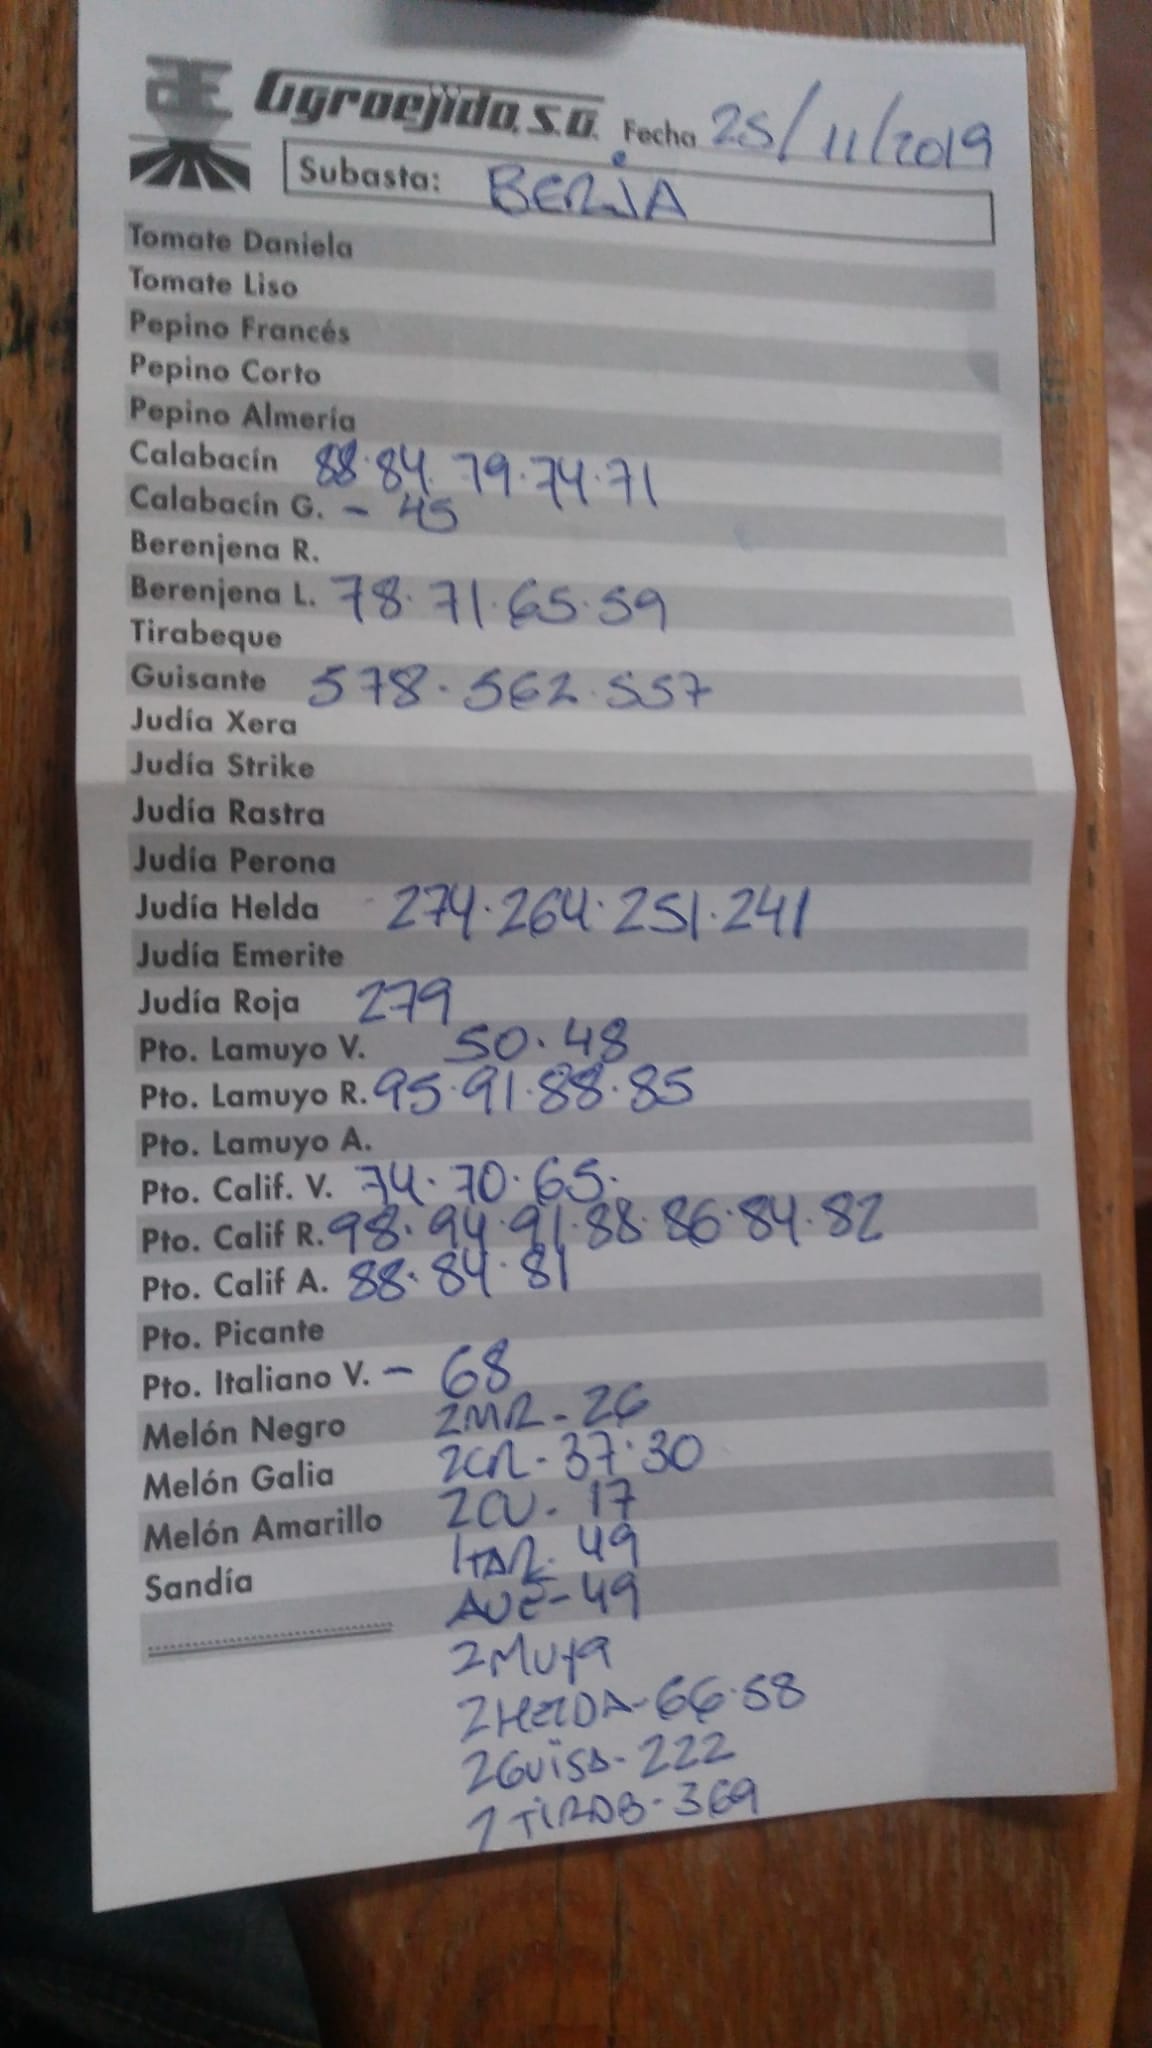 Agroejido, S.A. Fecha 25/11/2019
Subasta: BERJA
Tomate Daniela
Tomate Liso
Pepino Francés
Pepino Corto
Pepino Almería
Calabacín 88·84·79·74·71
Calabacín G. - 45
Berenjena R.
Berenjena L. 78·71·65·59
Tirabeque
Guisante 578·562·557
Judía Xera
Judía Strike
Judía Rastra
Judía Perona
Judía Helda 274·264·251·241
Judía Emerite
Judía Roja 279
Pto. Lamuyo V. 50·48
Pto. Lamuyo R. 95·91·88·85
Pto. Lamuyo A.
Pto. Calif. V. 74·70·65·
Pto. Calif R. 98·94·91·88·86·84·82
Pto. Calif A. 88·84·81
Pto. Picante
Pto. Italiano V. - 68
Melón Negro 2MR-26
Melón Galia 2CR-37·30
Melón Amarillo 2CV-17
1TAR-49
Sandía
AVE-49
2HELDA-66·58
2GUISA-222
TIRAB-369